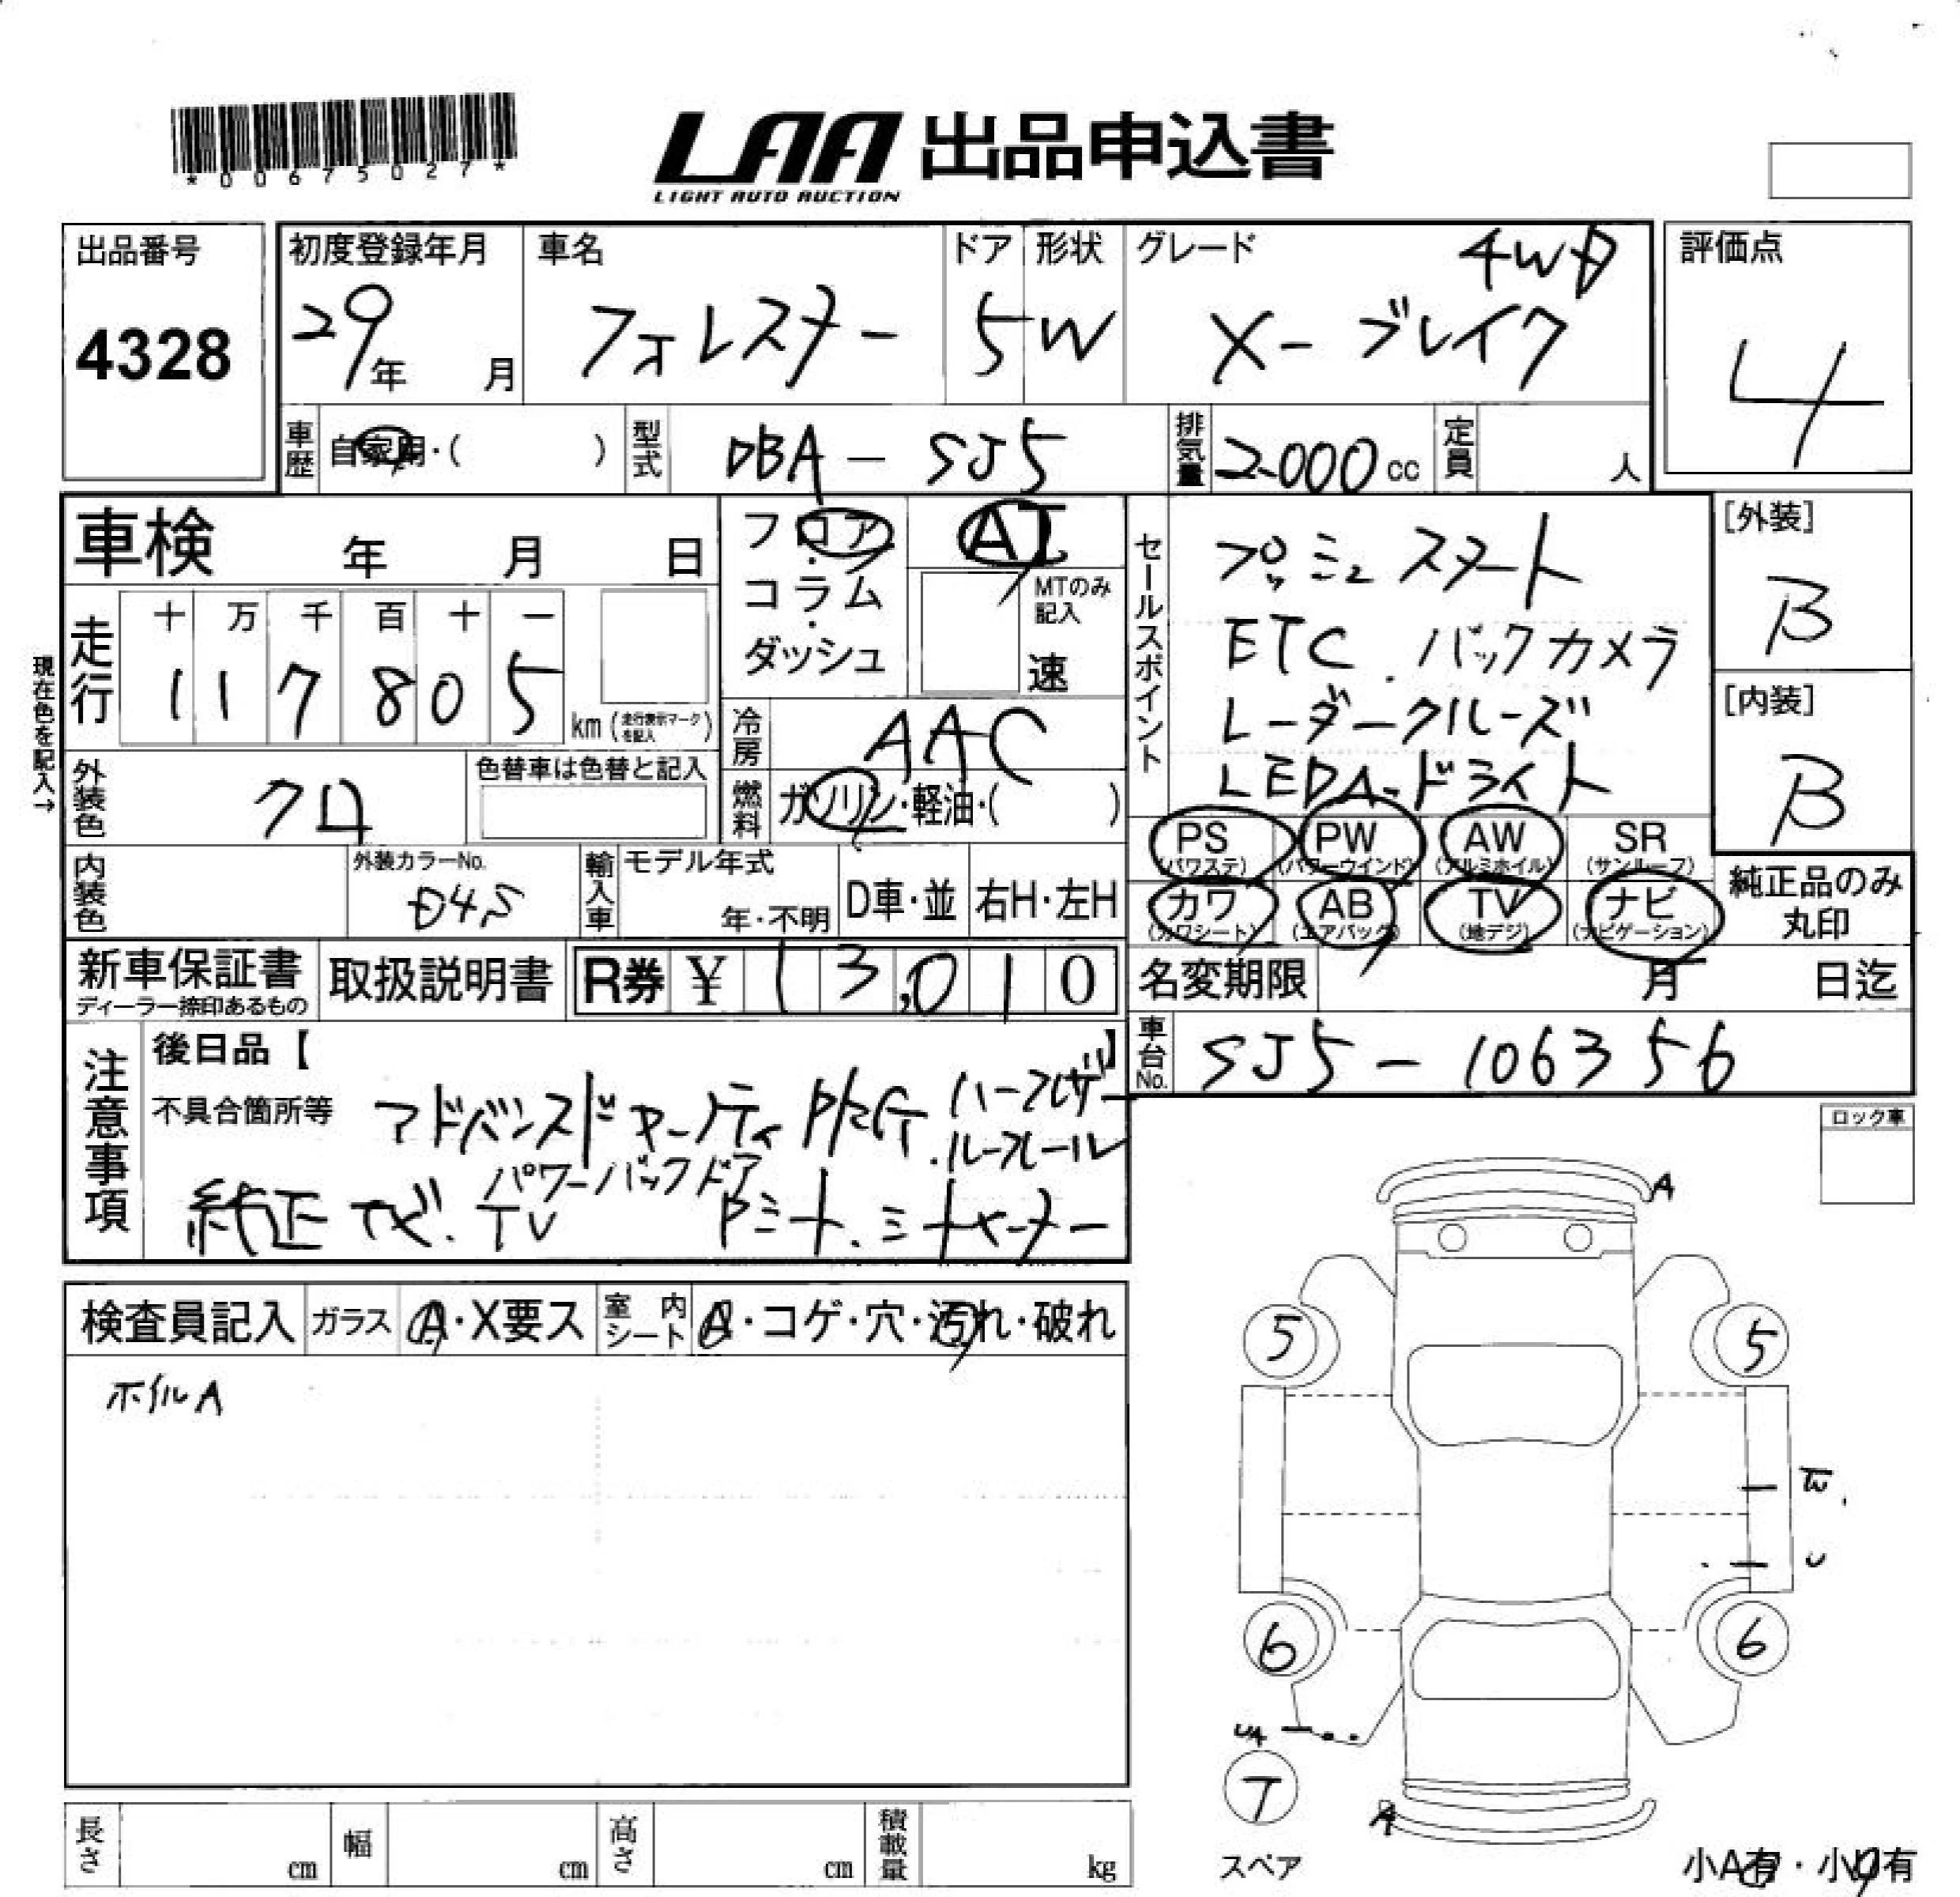 *00675027*
LAA 出品申込書
LIGHT AUTO AUCTION
出品番号
4328
初度登録年月
29年 月
車名
フォレスター
ドア
5
形状
W
グレード
4WD
X-ブレイク
評価点
4
車歴
自家用・( )
型式
DBA-SJ5
排気量
2000cc
定員
人
車検 年 月 日
フロア
・
コラム
・
ダッシュ
AT
MTのみ
記入
速
セールスポイント
プッシュスタート
ETC.バックカメラ
レーダークルーズ
LED
[外装]
B
[内装]
B
現在色を記入→
走行
十 万 千 百 十 一
1 1 7 8 0 5
km(走行表示マークを記入)
冷房
AAC
外装色
クロ
色替車は色替と記入
燃料
ガソリン・軽油・( )
PS
(パワステ)
PW
(パワーウインド)
AW
(アルミホイル)
SR
(サンルーフ)
カワ
(カワシート)
AB
(エアバック)
TV
(地デジ)
ナビ
(ナビゲーション)
純正品のみ
丸印
内装色
外装カラーNo.
D4S
輸入車
モデル年式
年・不明
D車・並
右H・左H
新車保証書
ディーラー捺印あるもの
取扱説明書
R券 ¥ 13,010
名変期限 月 日迄
車台No.
SJ5-106356
注意事項
後日品【 】
不具合箇所等
アドバンスドセーフティPKG.ハーフレザー
.ルーフレール
パワーバックドア
純正ナビ.TV Pシート.シートヒーター
ロック車
検査員記入
ガラス
A・X要ス
室内
シート
A・コゲ・穴・汚れ・破れ
ホイルA
A
5
5
U
6
6
UA
T
A
スペア
小A有・小U有
長さ cm
幅 cm
高さ cm
積載量 kg